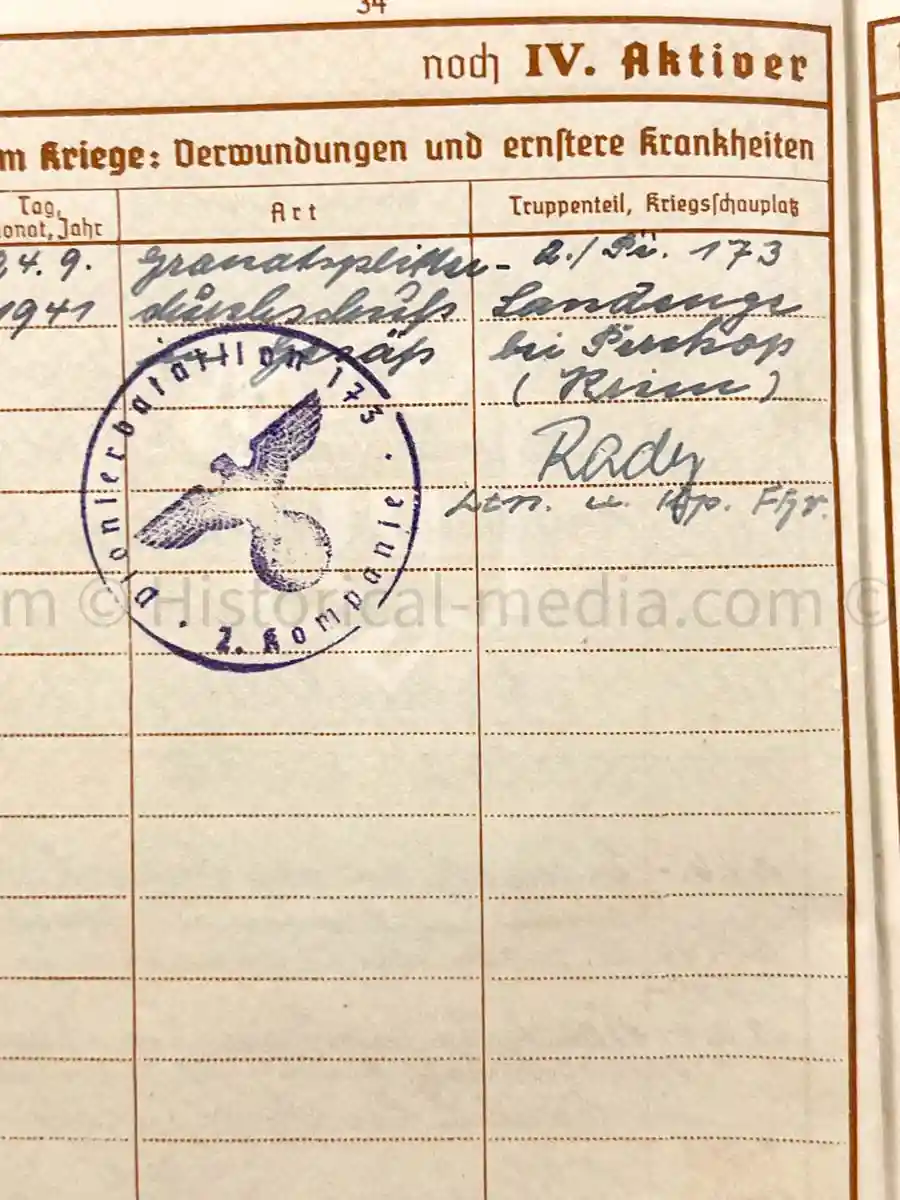 34
noch IV. Aktiver
m Kriege: Verwundungen und ernstere Krankheiten
Tag,
onat, Jahr
Art
Truppenteil, Kriegsschauplatz
24. 9.
1941
Granatsplitter-
durchschuß
im Gesäß
2./Pi. 173
Landenge
bei Perekop
(Krim)
Ltn. u. Kp. Fhr.
Pionierbataillon 173
2. Kompanie
m © Historical-media.com ©